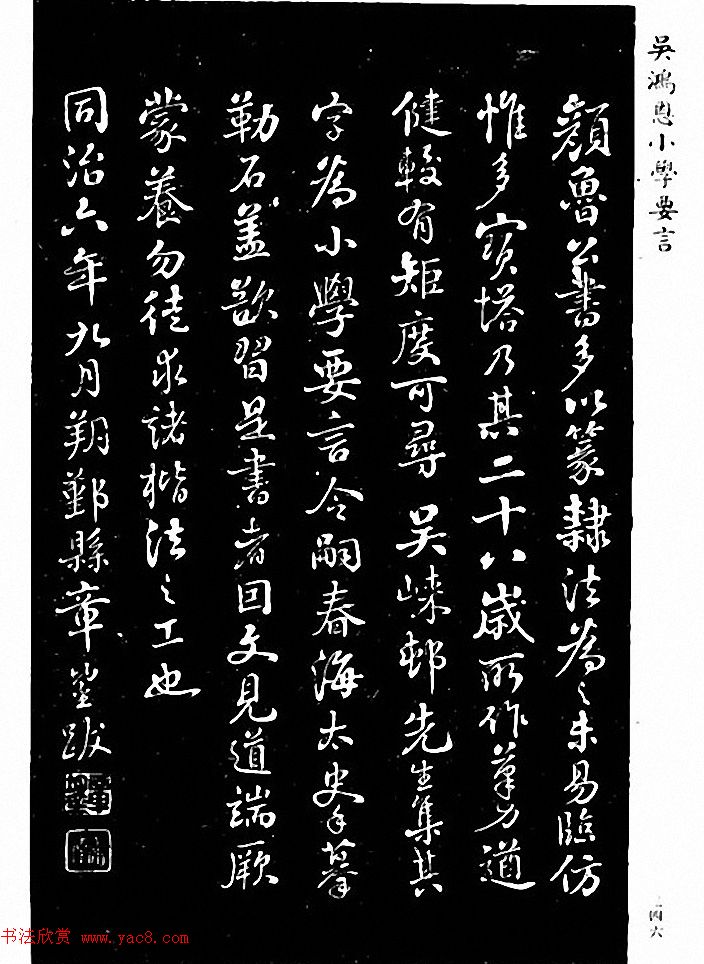 吳鴻恩小學要言
顏魯公書多以篆隸法為之未易臨仿
惟多寶塔乃其二十八歲所作筆力遒
健較有矩度可尋 吳崍邨先生集其
字為小學要言令嗣春海太史手摹
勒石蓋欲習是書者因文見道端厥
蒙養勿徒求諸楷法之工也
同治六年九月朔鄞縣章鋆跋
一四六
书法欣赏 www.yac8.com